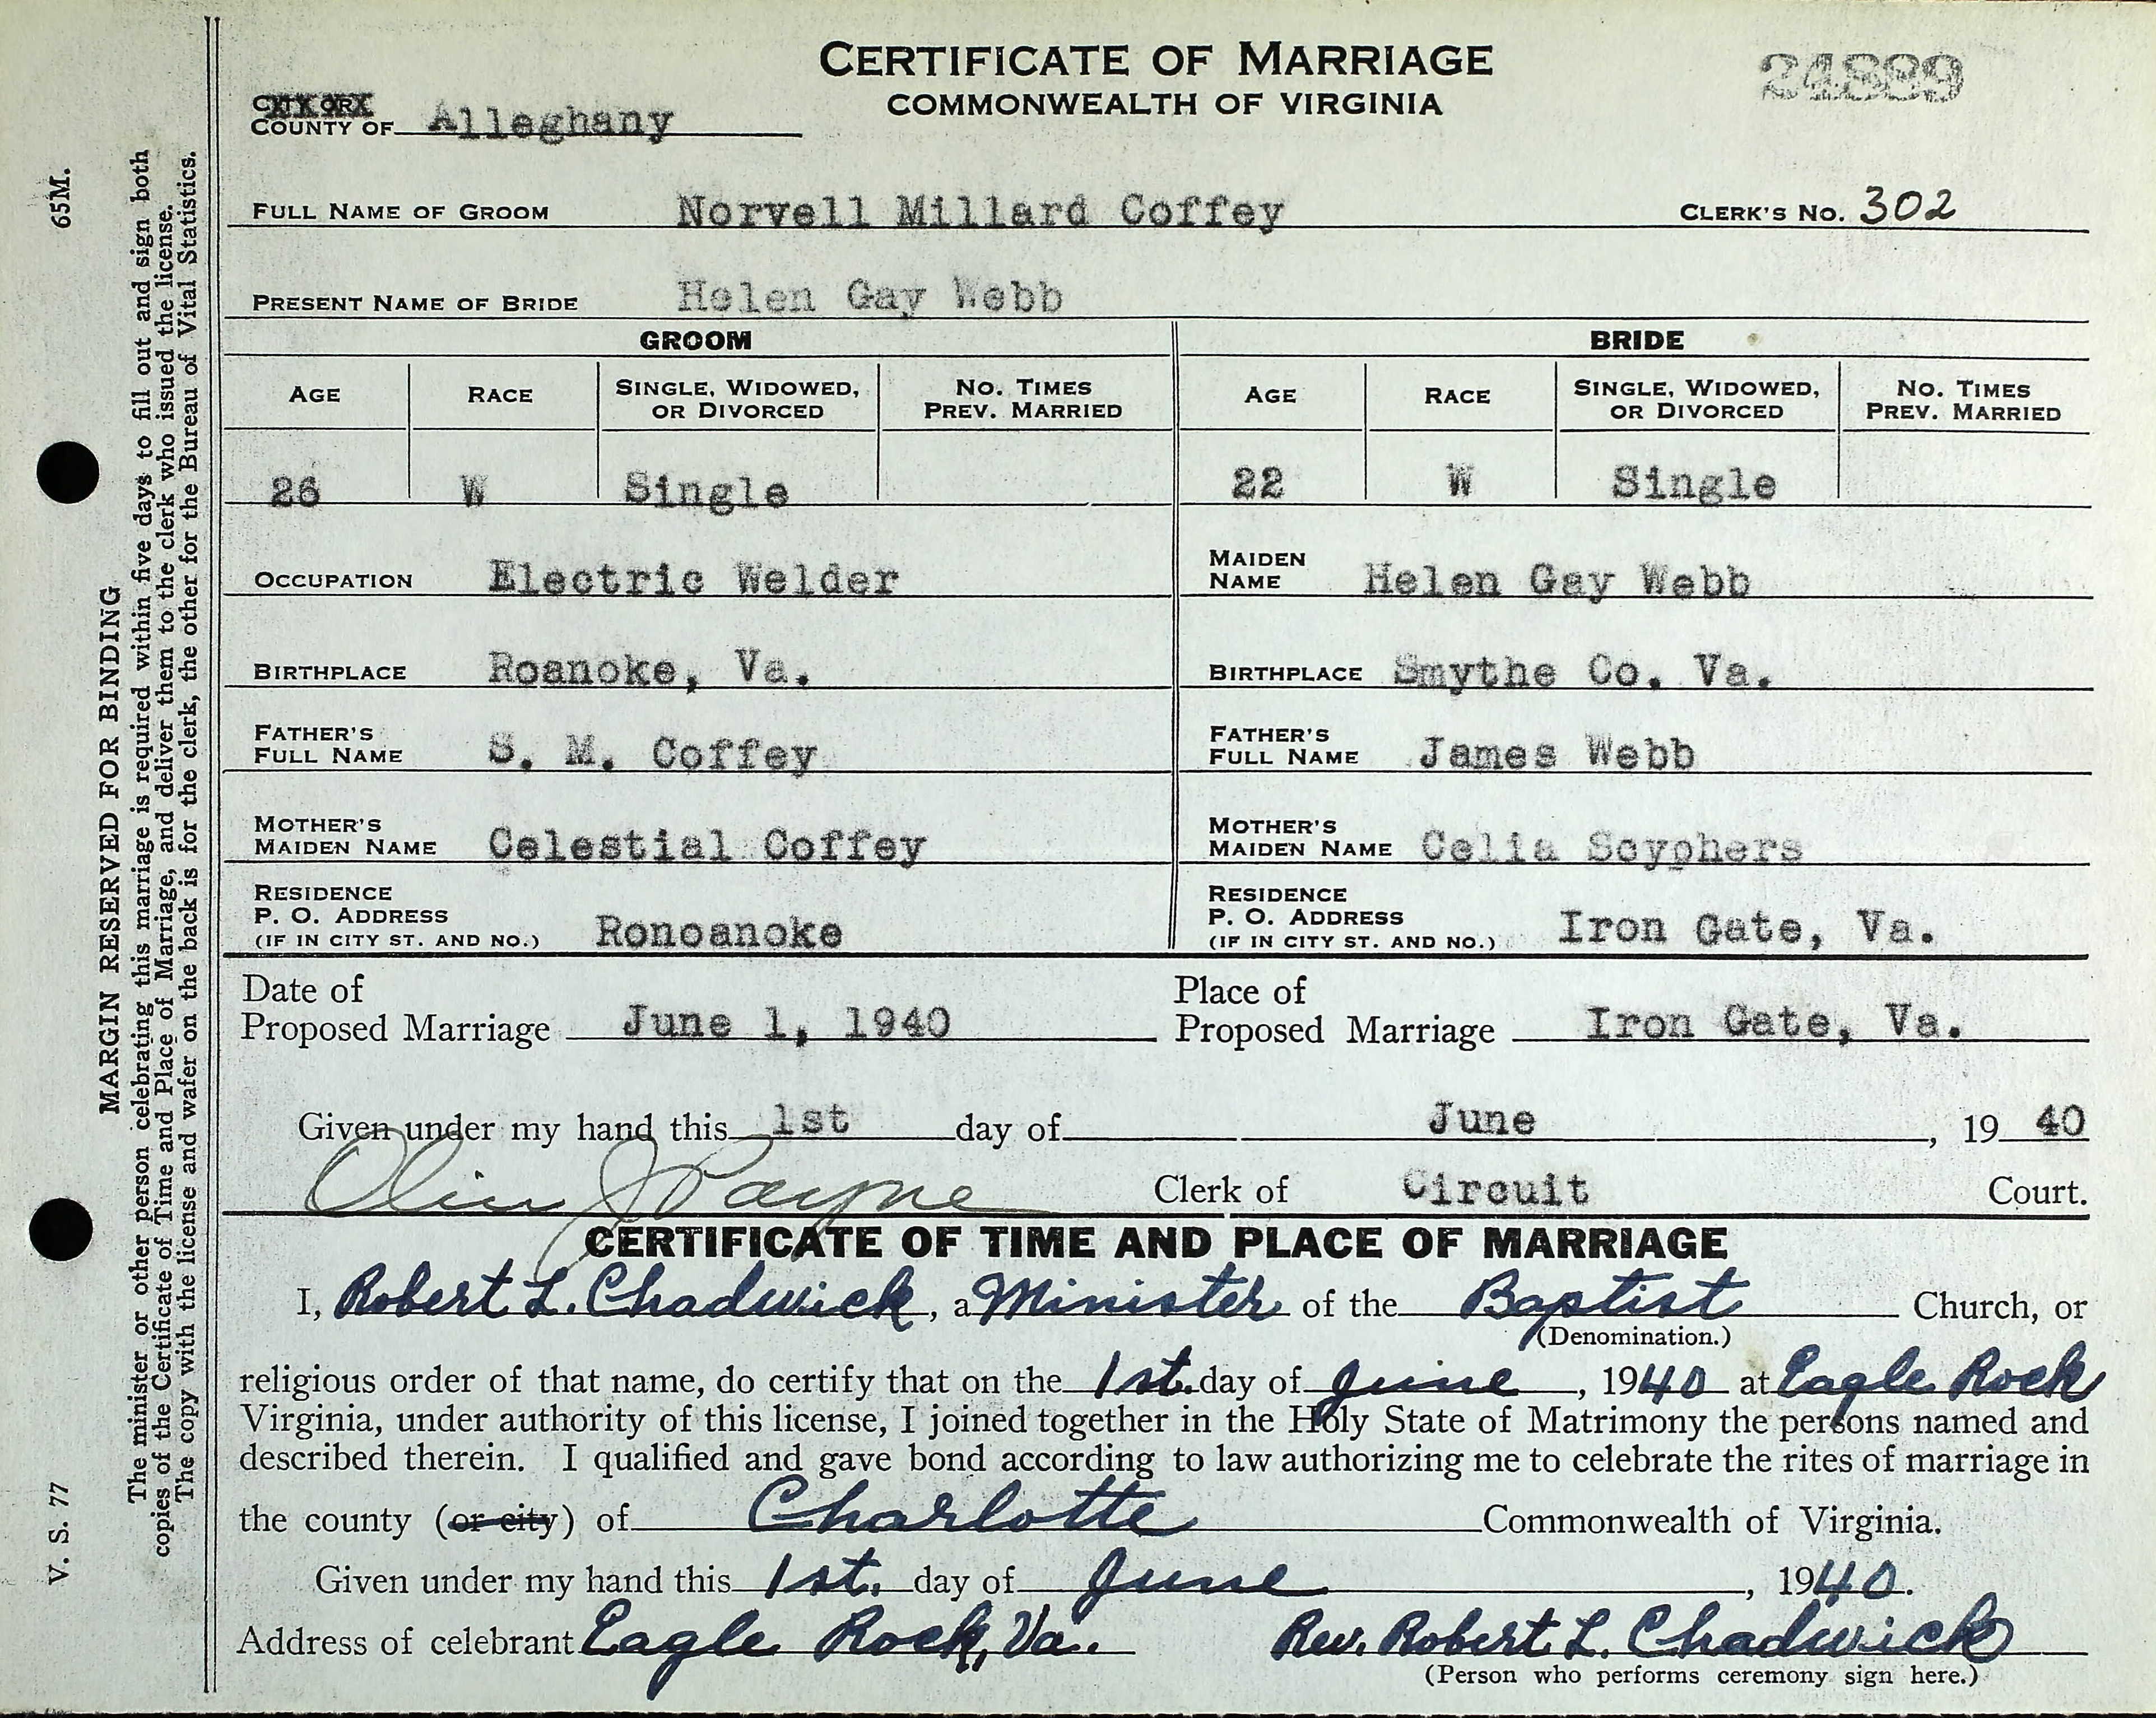 CERTIFICATE OF MARRIAGE
COMMONWEALTH OF VIRGINIA
24889
CITY OR
COUNTY OF Alleghany
FULL NAME OF GROOM Norvell Millard Coffey CLERK'S NO. 302
PRESENT NAME OF BRIDE Helen Gay Webb
GROOM BRIDE
AGE RACE SINGLE, WIDOWED, OR DIVORCED NO. TIMES PREV. MARRIED AGE RACE SINGLE, WIDOWED, OR DIVORCED NO. TIMES PREV. MARRIED
26 W Single 22 W Single
OCCUPATION Electric Welder MAIDEN NAME Helen Gay Webb
BIRTHPLACE Roanoke, Va. BIRTHPLACE Smythe Co. Va.
FATHER'S FULL NAME S. M. Coffey FATHER'S FULL NAME James Webb
MOTHER'S MAIDEN NAME Celestial Coffey MOTHER'S MAIDEN NAME Celia Scyphers
RESIDENCE RESIDENCE
P. O. ADDRESS P. O. ADDRESS
(IF IN CITY ST. AND NO.) Ronoanoke (IF IN CITY ST. AND NO.) Iron Gate, Va.
Date of Place of
Proposed Marriage June 1, 1940 Proposed Marriage Iron Gate, Va.
Given under my hand this 1st day of June, 19 40
Olin J Payne Clerk of Circuit Court.
CERTIFICATE OF TIME AND PLACE OF MARRIAGE
I, Robert L. Chadwick, a Minister of the Baptist Church, or
(Denomination.)
religious order of that name, do certify that on the 1st. day of June, 1940 at Eagle Rock
Virginia, under authority of this license, I joined together in the Holy State of Matrimony the persons named and
described therein. I qualified and gave bond according to law authorizing me to celebrate the rites of marriage in
the county (or city) of Charlotte Commonwealth of Virginia.
Given under my hand this 1st. day of June, 1940.
Address of celebrant Eagle Rock, Va. Rev. Robert L. Chadwick
(Person who performs ceremony sign here.)
V. S. 77 65M.
MARGIN RESERVED FOR BINDING
The minister or other person celebrating this marriage is required within five days to fill out and sign both
copies of the Certificate of Time and Place of Marriage, and deliver them to the clerk who issued the license.
The copy with the license and wafer on the back is for the clerk, the other for the Bureau of Vital Statistics.